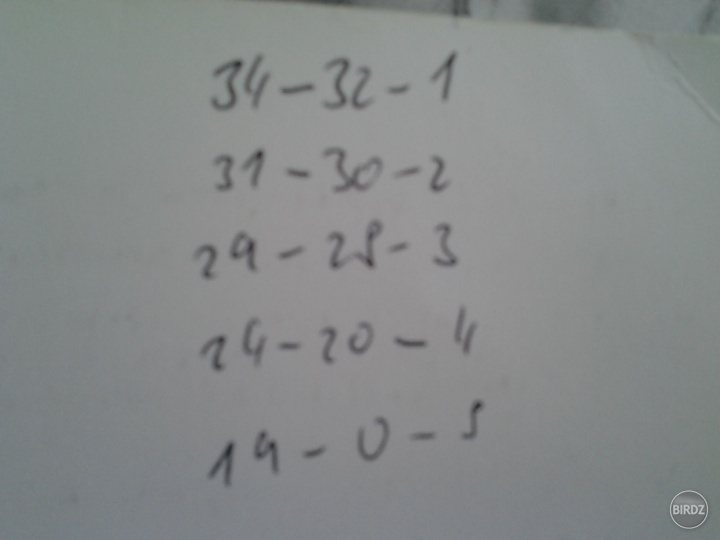 34 - 32 - 1
31 - 30 - 2
29 - 25 - 3
24 - 20 - 4
19 - 0 - 5
BIRDZ